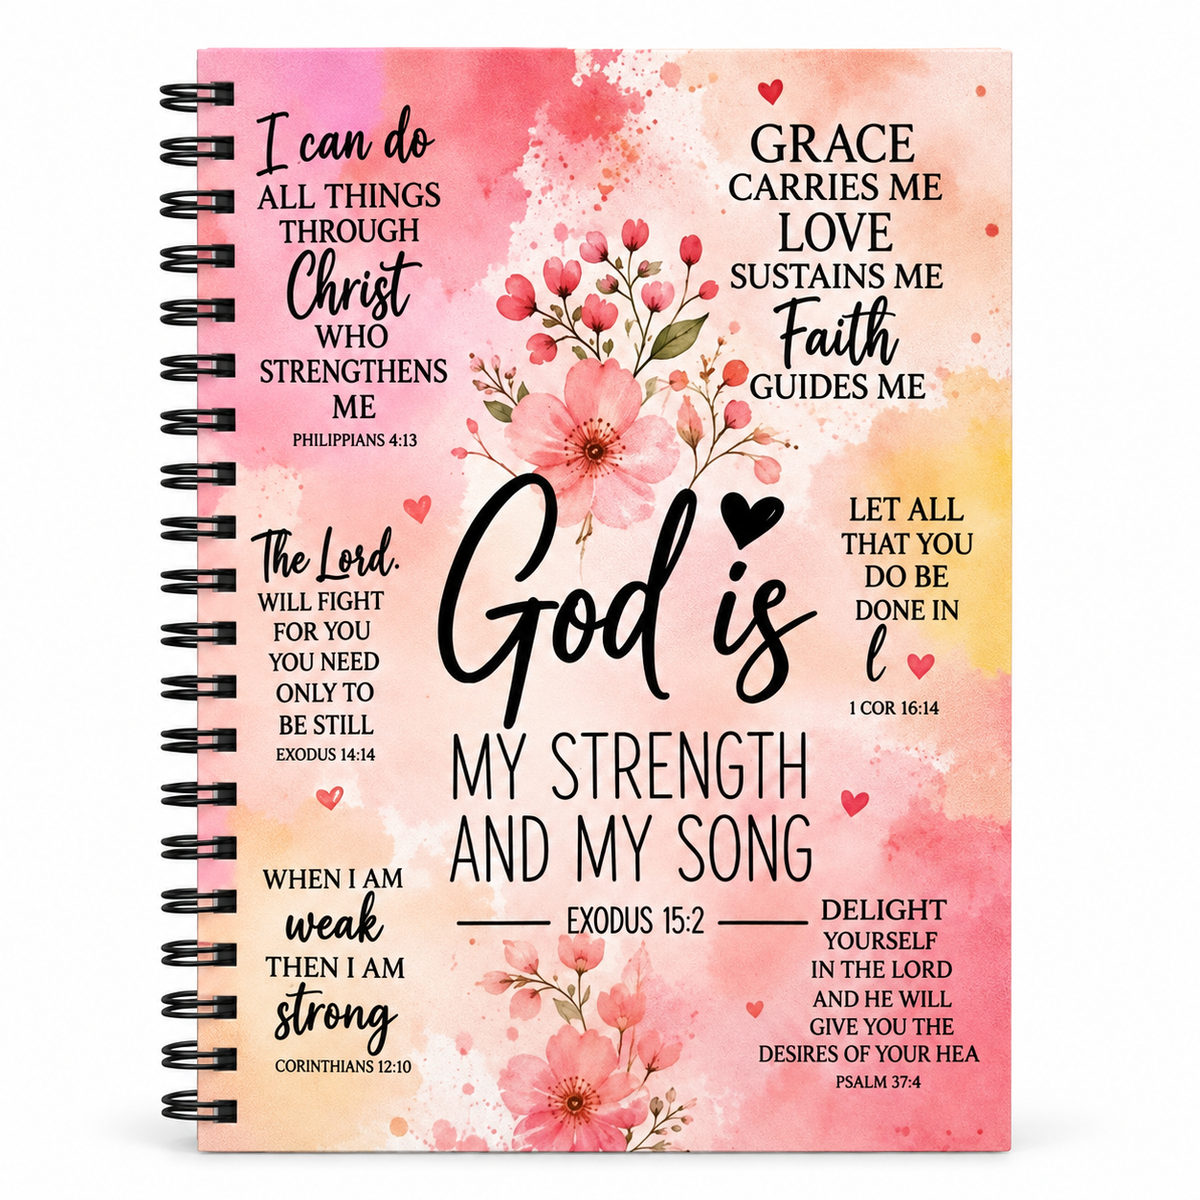 I can do
ALL THINGS
THROUGH
Christ
WHO
STRENGTHENS
ME
PHILIPPIANS 4:13
GRACE
CARRIES ME
LOVE
SUSTAINS ME
Faith
GUIDES ME
The Lord.
WILL FIGHT
FOR YOU
YOU NEED
ONLY TO
BE STILL
EXODUS 14:14
God is
MY STRENGTH
AND MY SONG
EXODUS 15:2
LET ALL
THAT YOU
DO BE
DONE IN
l
1 COR 16:14
WHEN I AM
weak
THEN I AM
strong
CORINTHIANS 12:10
DELIGHT
YOURSELF
IN THE LORD
AND HE WILL
GIVE YOU THE
DESIRES OF YOUR HEA
PSALM 37:4